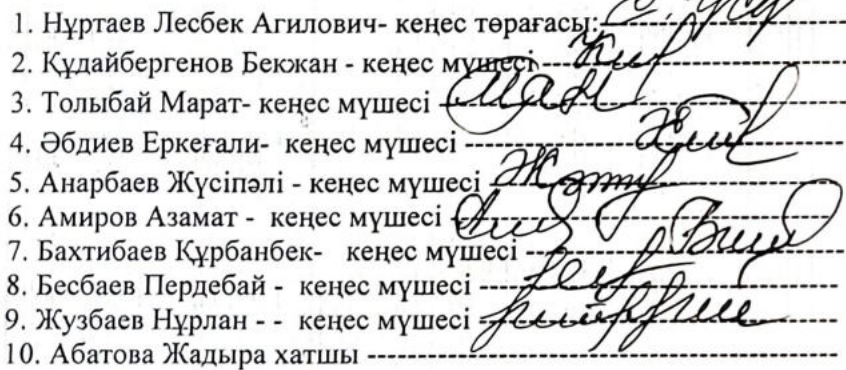 1. Нұртаев Лесбек Агилович- кеңес төрағасы:---
2. Құдайбергенов Бекжан - кеңес мүшесі ---
3. Толыбай Марат- кеңес мүшесі ---
4. Әбдиев Еркеғали- кеңес мүшесі ---
5. Анарбаев Жүсіпәлі - кеңес мүшесі ---
6. Амиров Азамат - кеңес мүшесі ---
7. Бахтибаев Құрбанбек- кеңес мүшесі ---
8. Бесбаев Пердебай - кеңес мүшесі ---
9. Жузбаев Нұрлан - - кеңес мүшесі ---
10. Абатова Жадыра хатшы ---